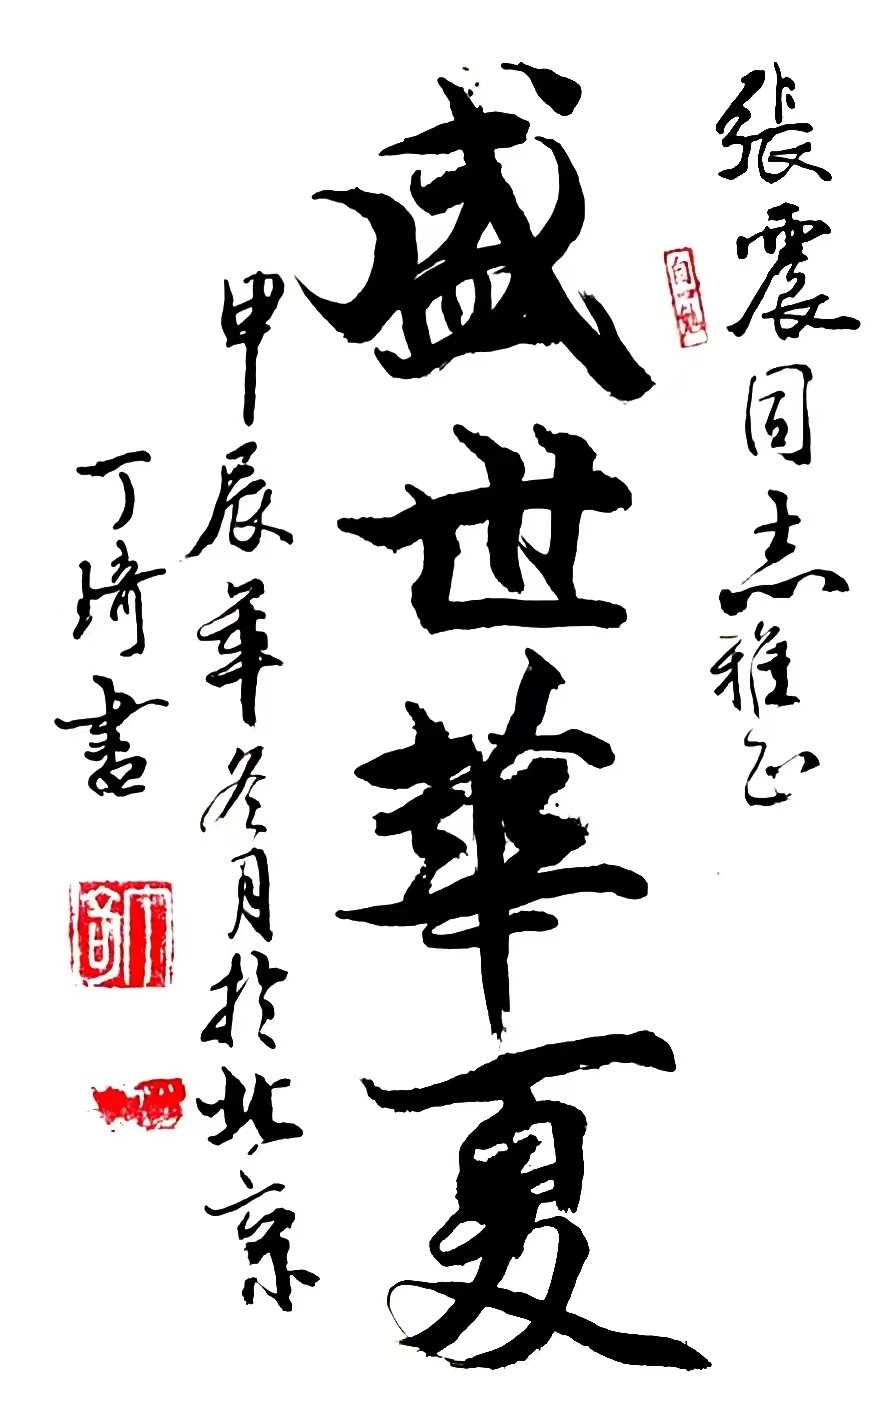 張震同志雅正
盛世華夏
甲辰年冬月於北京
丁琦書